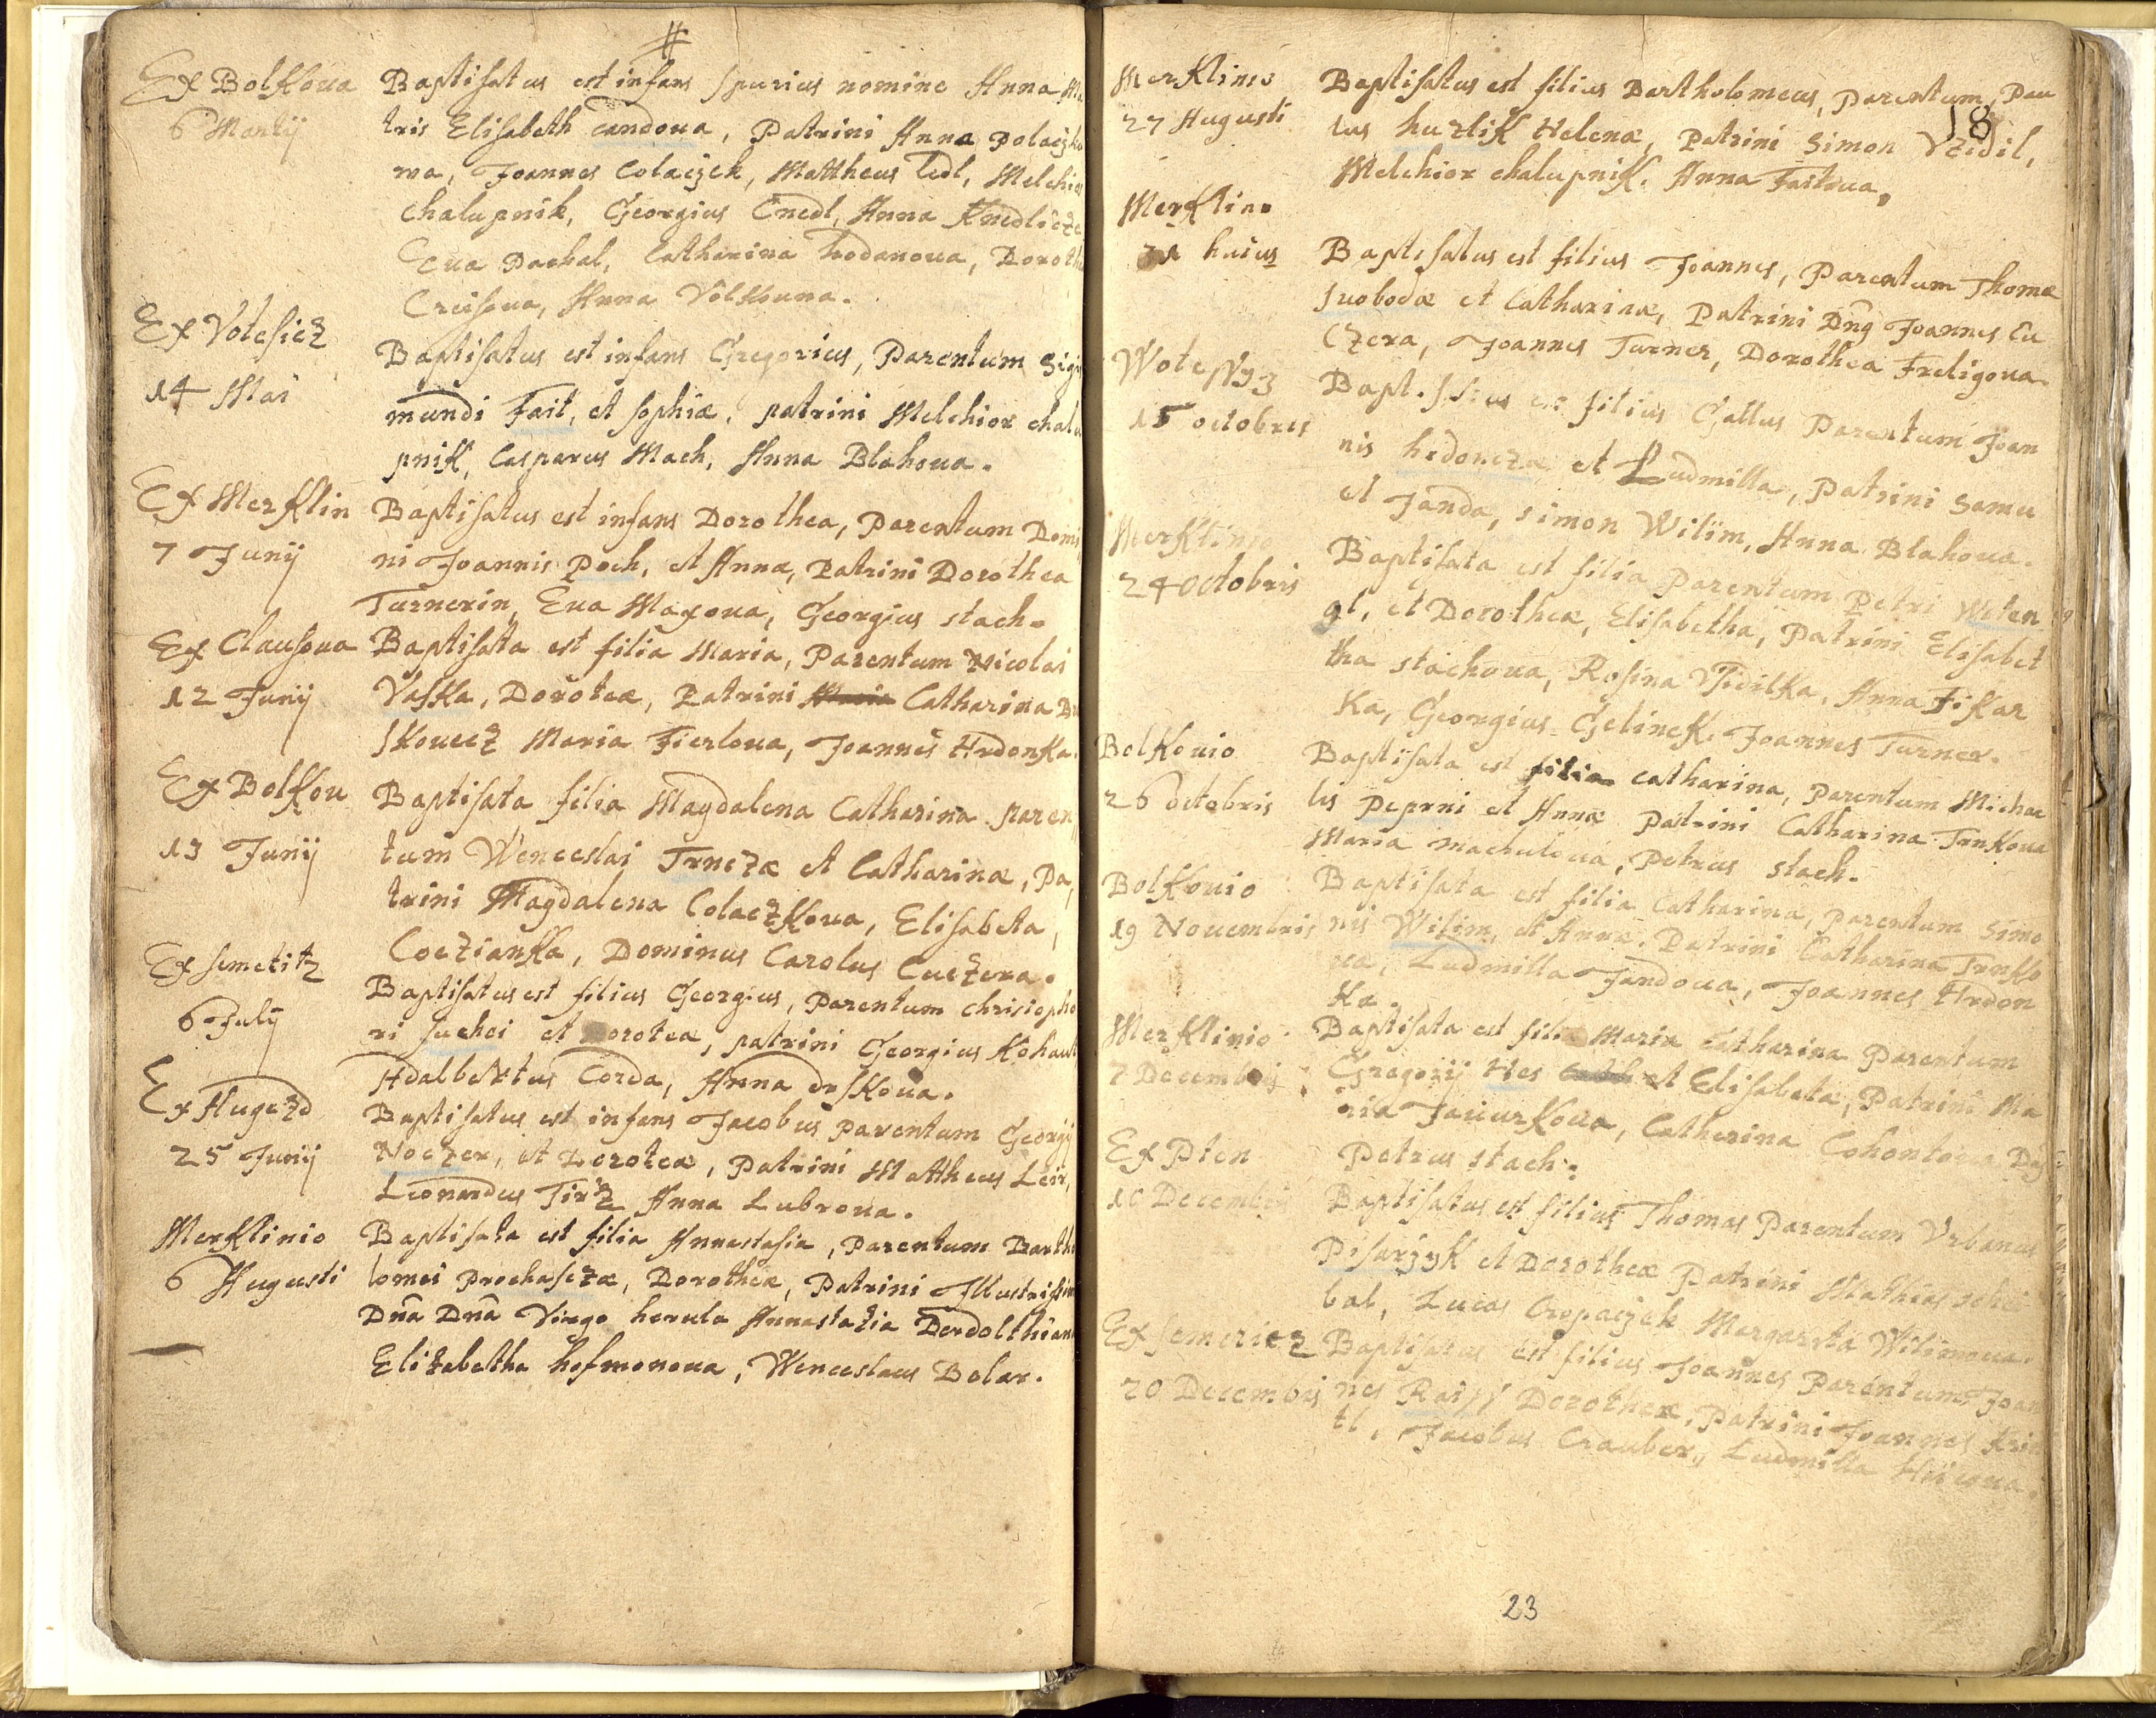 #
Ex Bolkoua Baptisatus est infans spurius nomine Anna Ma
6 Martij tris Elisabeth candoua, Patrini Anna Polaczko
wa, Joannes Colaczek, Mattheus Ledl, Melchior
chalupnik, Georgius Cnedl, Anna Knedlicze
Eua Pachal, Catharina hodanoua, Doroth
Creisoua, Anna Volkouna.
Ex Votesicz
Baptisatus est infans Gregorius, Parentum Sigis
14 Mai mundi Fait, et sophiæ, patrini Melchior chalu
pnik, Casparus Mach, Anna Blahoua.
Ex Merklin Baptisatus est infans Dorothea, Parentum Domi
7 Junij ni Joannis Poch, et Annæ, Patrini Dorothea
Turnerin, Eua Maxoua, Georgius stach.
Ex Clausoua Baptisata est filia Maria, Parentum Nicolai
12 Junij Vaska, Doroteæ, Patrini Catharina
skouecz Maria Fierloua, Joannes Hrdonka.
Ex Bolkou Baptisata filia Magdalena Catharina paren
13 Junij tum Wenceslai Trnczæ et Catharinæ, Pa,
trini Magdalena Colaczkoua, Elisabeta,
Coczianka, Dominus Carolus Cuczera.
Ex semetitz
Baptisatus est filius Georgius, Parentum christopho
6 July ri suchei et Doroteæ, patrini Georgius Kohaut
Adalbertus Cerda, Anna doskoua.
Ex Augezd
Baptisatus est infans Jacobus parentum Georgij
25 Junij Noczer, et Doroteæ, Patrini Mattheus Leir,
Leonardus Tirtz Anna Lubroua.
Merklinio Baptisata est filia Annastasia, Parentum Bartho
6 Augusti lomei Prochasczæ, Dorotheæ, Patrini Illustrissim
Dna Dna Virgo herula Annastatia Derdolthian
Elizabetha hofmonoua, Wenceslaus Bolar.
Merklinio Baptisatus est filius Bartholomeus, Parentum, Pau
18
27 Augusti lus huzlik Helenæ, Patrini Simon Vzidil,
Melchior chalupnik. Anna Faitoua.
Merklino
31 huius Baptisatus est filius Joannes, Parentum Thomæ
suobodæ et Catharinæ, Patrini Dng Joannes Cu
czera, Joannes Turner, Dorothea Freligoua.
Wotessyz
Bapt. filius Gallus Parentum Joan
15 octobris nis hrdonczæ et Ludmilla, Patrini Samu
el Janda, simon Wilim, Anna Blahoua.
Merklinio Baptisata est filia Parentum Petri Weten
24 Octobris gl, et Dorotheæ, Elisabetha, Patrini Elisabet
tha stachoua, Rosina Vzidilka, Anna Fikar
ka, Georgius Gelinek. Joannes Turner.
Bolkouio Baptisata est filia catharina, Parentum Michae
26 octobris lis Peprni et Annæ Patrini Catharina Trnkoua
Maria machuloua, Petrus stach.
Bolkouio Baptisata est filia Catharina, Parentum Simo
19 Nouembris nis Wilim, et Annæ. Patrini Catharina Trnko
ua, Ludmilla Jandoua, Joannes Hrdon
ka.
Merklinio Baptisata est filia Maria Catharina Parentum
7 Decembris Gregorij Hes et Elisabetæ, Patrini Ma
ria Jauurkoua, Catherina Cohontoua
Petrus stach.
Ex Pten
10 Decembris Baptisatus est filius Thomas Parentum Vrbanus
Pisarzyk et Dorotheæ Patrini Mathias
bal, Lucas Cropaczek Margareta Wilimoua.
Ex semericz Baptisatus est filius Joannes Parentum Joan
20 Decembris nes Raiss Dorotheæ, Patrini Joannes
tl, Jacobus Crauber, Ludmilla
23